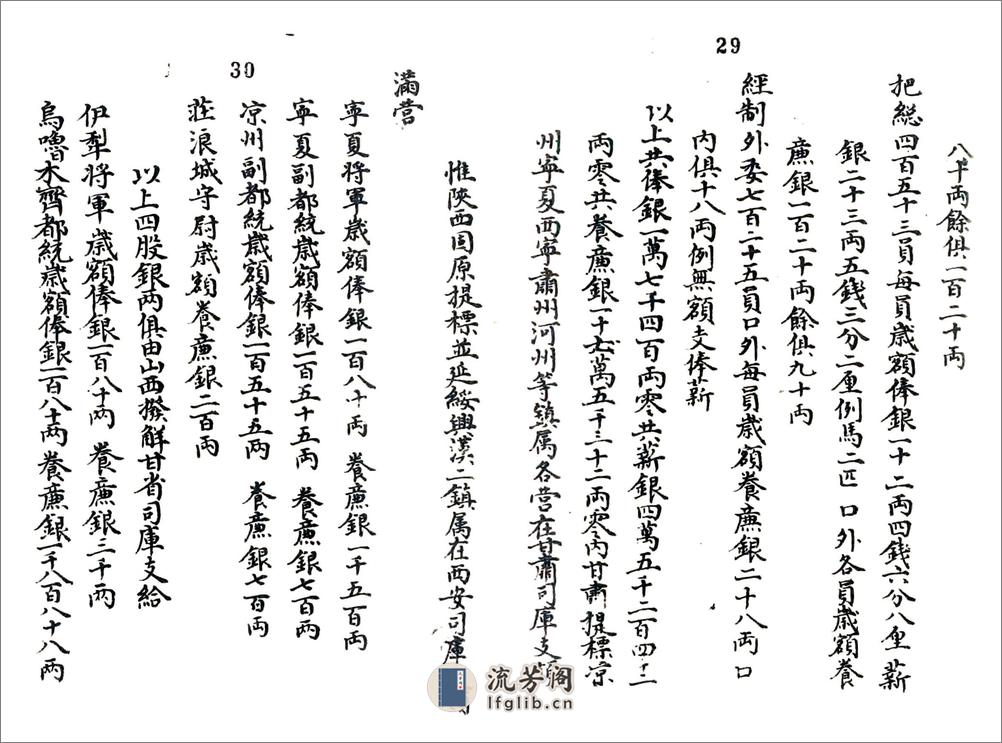 29
八千両餘俱一百二十両
把総四百五十三員每員歲額俸銀一十二両四錢六分八厘薪
銀二十三両五錢三分二厘例馬二匹口外各員歲額養
廉銀一百二十両餘俱九十両
經制外委七百二十五員口外每員歲額養廉銀二十八両口
內俱十八両例無額支俸薪
以上共俸銀一萬七千四百両零共薪銀四萬五千二百四十三
両零共養廉銀一十七萬五千三十二両零內甘肅提標凉
州寧夏西寧肅州河州等鎮属各营在甘肅司庫支領
惟陝西固原提標並延綏興漢二鎮属在西安司庫
30
滿营
寧夏將軍歲額俸銀一百八十両 養廉銀一千五百両
寧夏副都統歲額俸銀一百五十五両 養廉銀七百両
凉州副都統歲額俸銀一百五十五両 養廉銀七百両
莊浪城守尉歲額養廉銀二百両
以上四股銀両俱由山西撥解甘省司庫支給
伊犁將軍歲額俸銀一百八十両 養廉銀三千両
烏嚕木齊都統歲額俸銀一百八十両 養廉銀一千八百八十八両
流芳阁
lfglib.cn